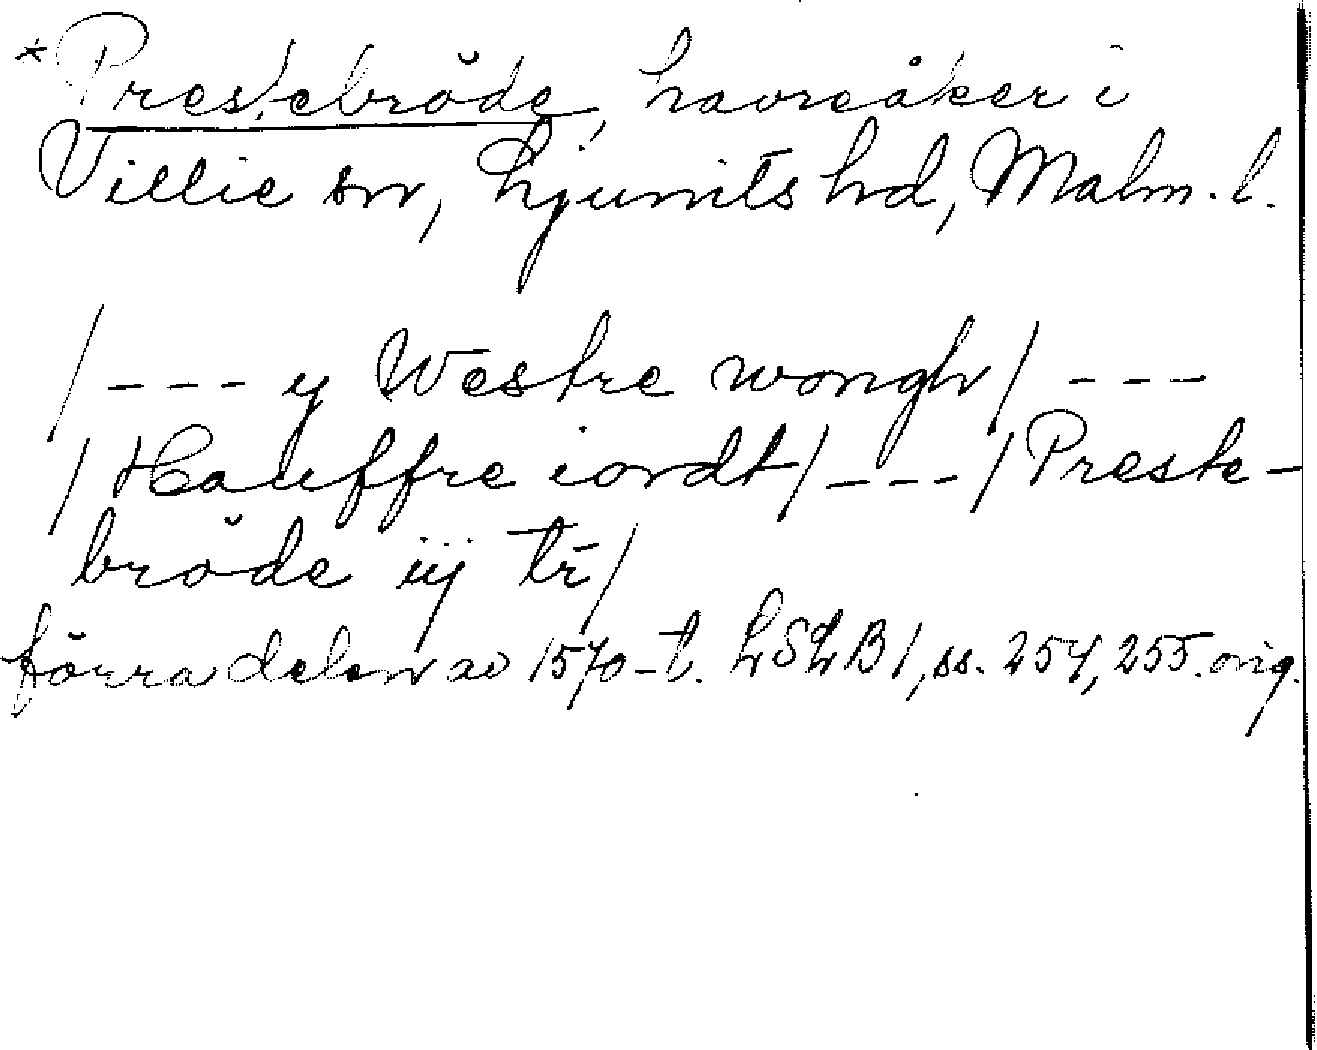 *Prestebröde, havreåker i
Villie sn, Ljunits hd, Malm. l.
/ --- y Westre wongh/ ---
/ Hauffre iordt/ --- / Preste-
bröde iij tr̄/
förra delen av 1570-t. LSLB1, ss. 254, 255. orig.